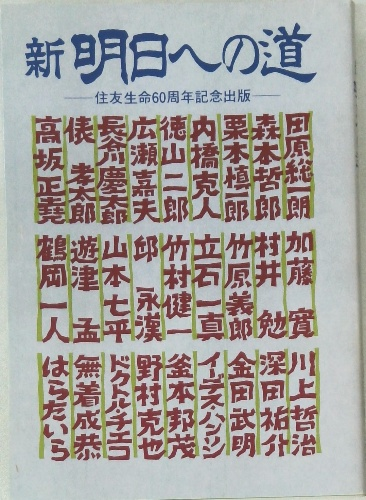 新 明日への道
住友生命60周年記念出版
田原総一朗
森本哲郎
栗本慎一郎
内橋克人
徳山二郎
広瀬嘉夫
長谷川慶太郎
俵 孝太郎
高坂正堯
加藤 寛
村井 勉
竹原義郎
立石一真
竹村健一
邱 永漢
山本七平
遊津 孟
鶴岡一人
川上哲治
深田祐介
金田武明
イーデス・ハンソン
釜本邦茂
野村克也
ドクトル・チエコ
無着成恭
はらたいら